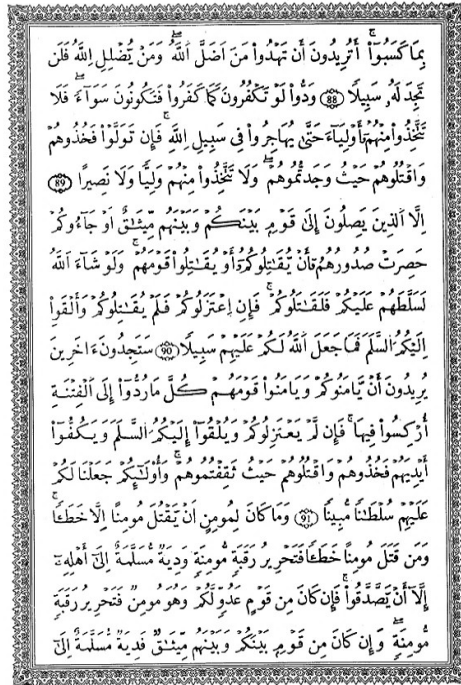 بِمَا كَسَبُوٓاْ أَتُرِيدُونَ أَن تَهۡدُواْ مَنَ اَضَلَّ اَللَّهُ وَمَنۡ يُّضۡلِلِ اِللَّهُ فَلَن
تَجِدَ لَهُۥ سَبِيلٗا 88 وَدُّواْ لَوۡ تَكۡفُرُونَ كَمَا كَفَرُواْ فَتَكُونُونَ سَوَآءٗ فَلَا
تَتَّخِذُواْ مِنۡهُمُۥٓ أَوۡلِيَآءَ حَتَّىٰ يُهَاجِرُواْ فِي سَبِيلِ اِللَّهِ فَإِن تَوَلَّوۡاْ فَخُذُوهُمۡ
وَاقۡتُلُوهُمۡ حَيۡثُ وَجَدتُّمُوهُمۡ وَلَا تَتَّخِذُواْ مِنۡهُمۡ وَلِيّٗا وَلَا نَصِيرًا 89
اِلَّا اَلذِينَ يَصِلُونَ إِلَىٰ قَوۡمِۭ بَيۡنَكُمۡ وَبَيۡنَهُم مِّيثَٰقٌ اَوۡ جَآءُوكُمۡ
حَصِرَتۡ صُدُورُهُمُۥٓ أَنۡ يُّقَٰتِلُوكُمُۥٓ أَوۡ يُقَٰتِلُواْ قَوۡمَهُمۡ وَلَوۡ شَآءَ اَللَّهُ
لَسَلَّطَهُمۡ عَلَيۡكُمۡ فَلَقَٰتَلُوكُمۡ فَإِنِ اِعۡتَزَلُوكُمۡ فَلَمۡ يُقَٰتِلُوكُمۡ وَأَلۡقَوِاْ
اِلَيۡكُمُ اُلسَّلَمَ فَمَا جَعَلَ اَللَّهُ لَكُمۡ عَلَيۡهِمۡ سَبِيلٗا 90 سَتَجِدُونَ ءَاخَرِينَ
يُرِيدُونَ أَنۡ يَّامَنُوكُمۡ وَيَامَنُواْ قَوۡمَهُمۡ كُلَّ مَا رُدُّوٓاْ إِلَى اَلۡفِتۡنَةِ
أُرۡكِسُواْ فِيهَا فَإِن لَّمۡ يَعۡتَزِلُوكُمۡ وَيُلۡقُوٓاْ إِلَيۡكُمُ اُلسَّلَمَ وَيَكُفُّوٓاْ
أَيۡدِيَهُمۡ فَخُذُوهُمۡ وَاقۡتُلُوهُمۡ حَيۡثُ ثَقِفۡتُمُوهُمۡ وَأُوْلَٰٓئِكُمۡ جَعَلۡنَا لَكُمۡ
عَلَيۡهِمۡ سُلۡطَٰنٗا مُّبِينٗا 91 وَمَا كَانَ لِمُومِنٍ اَنۡ يَّقۡتُلَ مُومِنًا اِلَّا خَطَـٔٗا
وَمَن قَتَلَ مُومِنًا خَطَـٔٗا فَتَحۡرِيرُ رَقَبَةٖ مُّومِنَةٖ وَدِيَةٞ مُّسَلَّمَةٌ اِلَىٰٓ أَهۡلِهِۦٓ
إِلَّآ أَنۡ يَّصَّدَّقُواْ فَإِن كَانَ مِن قَوۡمٍ عَدُوّٖ لَّكُمۡ وَهُوَ مُومِنٞ فَتَحۡرِيرُ رَقَبَةٖ
مُّومِنَةٖ وَإِن كَانَ مِن قَوۡمِۭ بَيۡنَكُمۡ وَبَيۡنَهُم مِّيثَٰقٞ فَدِيَةٞ مُّسَلَّمَةٌ اِلَىٰٓ